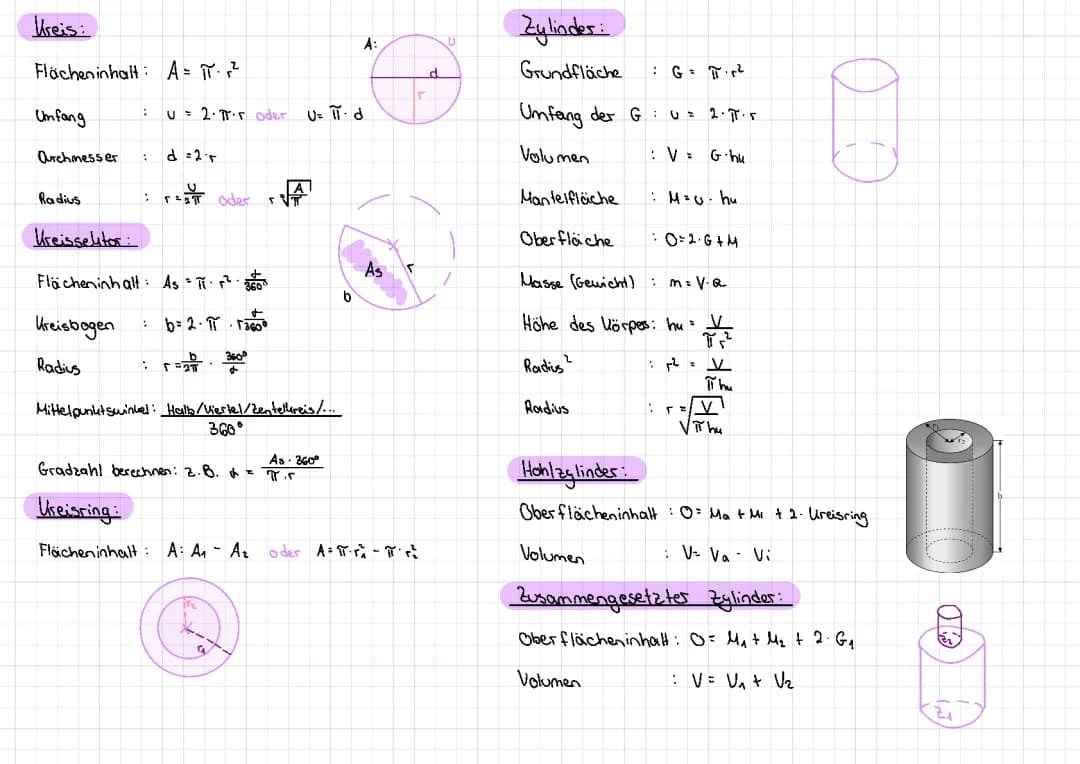 Kreis:
Flächeninhalt : A = π · r²
Umfang : U = 2 · π · r oder U = π · d
Durchmesser : d = 2 · r
Radius : r = U/2π oder r √A/π
A: U
d
r
Kreissektor:
Flächeninhalt : As = π · r² · α/360°
Kreisbogen : b = 2 · π · r α/360°
Radius : r = b/2π · 360°/α
Mittelpunktswinkel : Halb/Viertel/Zentelkreis/... / 360°
Gradzahl berechnen: z.B. α = As · 360° / π · r
As r
b
Kreisring:
Flächeninhalt : A: A₁ - A₂ oder A = π · r₁² - π · r₂²
r₂
r₁
Zylinder:
Grundfläche : G = π · r²
Umfang der G : U = 2 · π · r
Volumen : V = G · hk
Mantelfläche : M = U · hk
Oberfläche : O = 2 · G + M
Masse (Gewicht) : m = V · ϱ
Höhe des Körpes : hk = V/π r²
Radius² : r² = V/π hk
Radius : r = √V/π hk
Hohlzylinder:
Oberflächeninhalt : O = Ma + Mi + 2 · Kreisring
Volumen : V = Va - Vi
r₁ r₂
h
Zusammengesetzter Zylinder:
Oberflächeninhalt : O = M₁ + M₂ + 2 · G₁
Volumen : V = V₁ + V₂
Z₂
Z₁